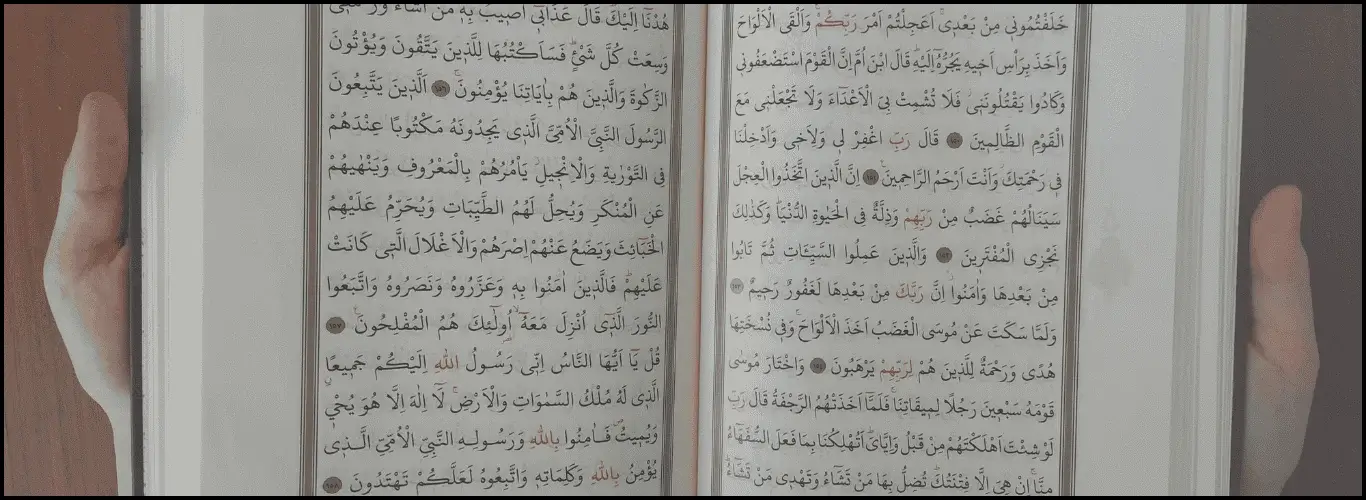 خَلَفْتُمُونٖي مِنْ بَعْدٖيۚ اَعَجِلْتُمْ اَمْرَ رَبِّكُمْۚ وَاَلْقَى الْاَلْوَاحَ
وَاَخَذَ بِرَأْسِ اَخٖيهِ يَجُرُّهُٓ اِلَيْهِۜ قَالَ ابْنَ اُمَّ اِنَّ الْقَوْمَ اسْتَضْعَفُونٖي
وَكَادُوا يَقْتُلُونَنٖيۘ فَلَا تُشْمِتْ بِيَ الْاَعْدَٓاءَ وَلَا تَجْعَلْنٖي مَعَ
الْقَوْمِ الظَّالِمٖينَ ﴿١٥٠﴾ قَالَ رَبِّ اغْفِرْ لٖي وَلِاَخٖي وَاَدْخِلْنَا
فٖي رَحْمَتِكَ وَاَنْتَ اَرْحَمُ الرَّاحِمٖينَ۟ ﴿١٥١﴾ اِنَّ الَّذٖينَ اتَّخَذُوا الْعِجْلَ
سَيَنَالُهُمْ غَضَبٌ مِنْ رَبِّهِمْ وَذِلَّةٌ فِي الْحَيٰوةِ الدُّنْيَاۜ وَكَذٰلِكَ
نَجْزِي الْمُفْتَرٖينَ ﴿١٥٢﴾ وَالَّذٖينَ عَمِلُوا السَّيِّـَٔاتِ ثُمَّ تَابُوا
مِنْ بَعْدِهَا وَاٰمَنُواۘ اِنَّ رَبَّكَ مِنْ بَعْدِهَا لَغَفُورٌ رَحٖيمٌ ﴿١٥٣﴾
وَلَمَّا سَكَتَ عَنْ مُوسَى الْغَضَبُ اَخَذَ الْاَلْوَاحَۚ وَفٖي نُسْخَتِهَا
هُدًى وَرَحْمَةٌ لِلَّذٖينَ هُمْ لِرَبِّهِمْ يَرْهَبُونَ ﴿١٥٤﴾ وَاخْتَارَ مُوسٰى
قَوْمَهُ سَبْعٖينَ رَجُلًا لِمٖيقَاتِنَاۚ فَلَمَّٓا اَخَذَتْهُمُ الرَّجْفَةُ قَالَ رَبِّ
لَوْ شِئْتَ اَهْلَكْتَهُمْ مِنْ قَبْلُ وَاِيَّايَۜ اَتُهْلِكُنَا بِمَا فَعَلَ السُّفَهَٓاءُ
مِنَّاۚ اِنْ هِيَ اِلَّا فِتْنَتُكَۜ تُضِلُّ بِهَا مَنْ تَشَٓاءُ وَتَهْدٖي مَنْ تَشَٓاءُۜ
هُدْنَٓا اِلَيْكَۜ قَالَ عَذَابٖٓي اُصٖيبُ بِهٖ مَنْ اَشَٓاءُۚ
وَسِعَتْ كُلَّ شَيْءٍۜ فَسَاَكْتُبُهَا لِلَّذٖينَ يَتَّقُونَ وَيُؤْتُونَ
الزَّكٰوةَ وَالَّذٖينَ هُمْ بِاٰيَاتِنَا يُؤْمِنُونَۚ ﴿١٥٦﴾ اَلَّذٖينَ يَتَّبِعُونَ
الرَّسُولَ النَّبِيَّ الْاُمِّيَّ الَّذٖي يَجِدُونَهُ مَكْتُوبًا عِنْدَهُمْ
فِي التَّوْرٰيةِ وَالْاِنْجٖيلِۘ يَأْمُرُهُمْ بِالْمَعْرُوفِ وَيَنْهٰيهُمْ
عَنِ الْمُنْكَرِ وَيُحِلُّ لَهُمُ الطَّيِّبَاتِ وَيُحَرِّمُ عَلَيْهِمُ
الْخَبَٓائِثَ وَيَضَعُ عَنْهُمْ اِصْرَهُمْ وَالْاَغْلَالَ الَّتٖي كَانَتْ
عَلَيْهِمْۜ فَالَّذٖينَ اٰمَنُوا بِهٖ وَعَزَّرُوهُ وَنَصَرُوهُ وَاتَّبَعُوا
النُّورَ الَّذٖٓي اُنْزِلَ مَعَهُٓۙ اُو۬لٰٓئِكَ هُمُ الْمُفْلِحُونَ۟ ﴿١٥٧﴾
قُلْ يَٓا اَيُّهَا النَّاسُ اِنّٖي رَسُولُ اللّٰهِ اِلَيْكُمْ جَمٖيعًاۨ
الَّذٖي لَهُ مُلْكُ السَّمٰوَاتِ وَالْاَرْضِۚ لَٓا اِلٰهَ اِلَّا هُوَ يُحْيٖ
وَيُمٖيتُۖ فَاٰمِنُوا بِاللّٰهِ وَرَسُولِهِ النَّبِيِّ الْاُمِّيِّ الَّذٖي
يُؤْمِنُ بِاللّٰهِ وَكَلِمَاتِهٖ وَاتَّبِعُوهُ لَعَلَّكُمْ تَهْتَدُونَ ﴿١٥٨﴾